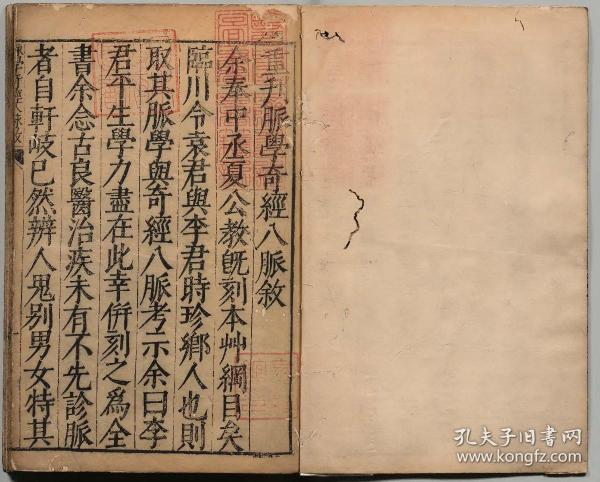 重刊脈學奇經八脈敘
余奉中丞夏公教既刻本艸綱目矣
臨川令袁君與李君時珍鄉人也則
取其脈學與奇經八脈考示余曰李
君平生學力盡在此幸倂刻之爲全
書余念古良醫治疾未有不先診脈
者自軒岐已然辨人鬼别男女特其
孔夫子旧书网
www.kongfz.com